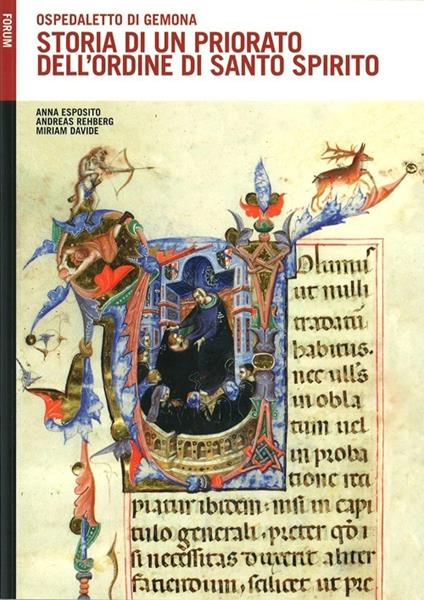 FORUM
OSPEDALETTO DI GEMONA
STORIA DI UN PRIORATO
DELL'ORDINE DI SANTO SPIRITO
ANNA ESPOSITO
ANDREAS REHBERG
MIRIAM DAVIDE
Volumus
ut nulli
tradatur
habitus.
nec ull's
in obla
tum uel
in proba
tione reci
piatur ibidem. nisi in capi
tulo generali, preter qđ i
si necessitas duxerit aliter
faciendum, scilicet ut pre